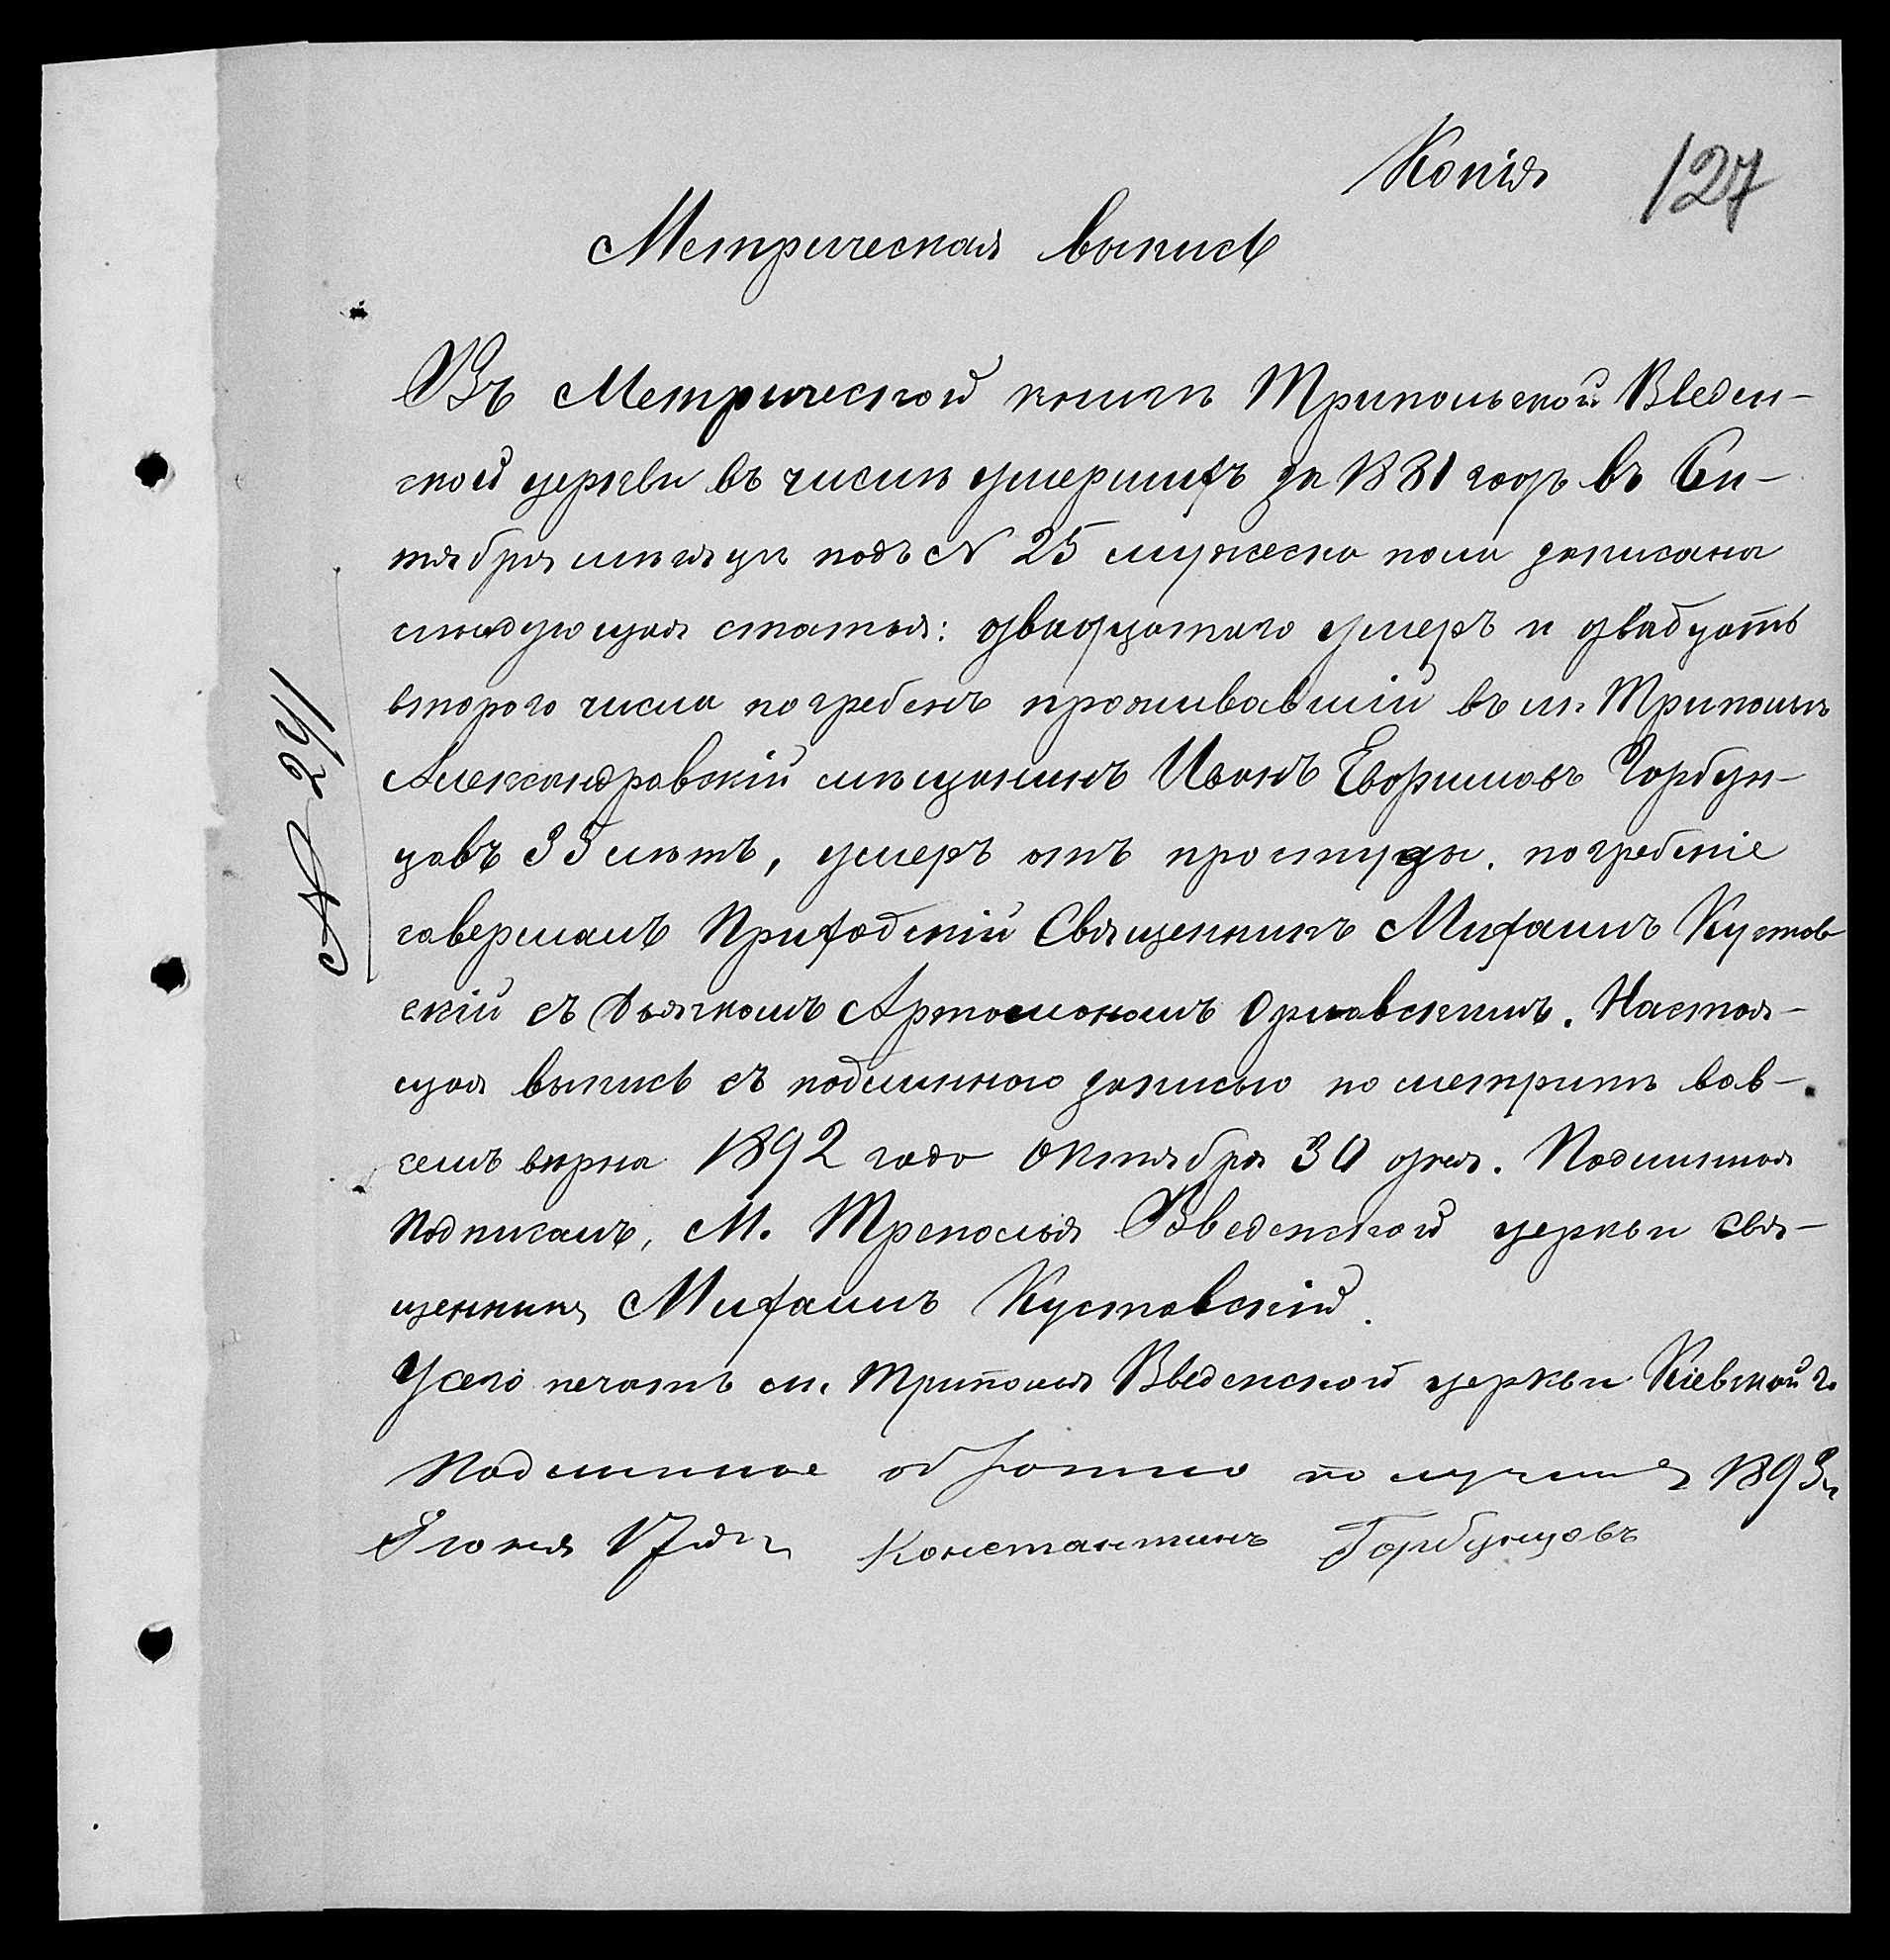 Копія
127
Метрическая выпись
Въ Метрической книгѣ Трипольской Введен-
ской церкви въ числѣ умершихъ за 1881 годъ въ Сен-
тября мѣсяцѣ подъ № 25 мужеска пола записана
слѣдующая статья: двадцатаго умеръ и двадцать
втораго числа погребенъ проживавшій въ м. Трипольѣ
Александровскій мѣщанинъ Иванъ Ефримовъ Горбун-
цовъ 33 лѣтъ, умеръ отъ простуды. погребеніе
совершалъ Приходскій Священникъ Михаилъ Кустов
скій съ Дьячкомъ Артомономъ Орловскимъ. Настоя-
щая выпись съ подлинною записью по метрикѣ вов-
семъ вѣрна 1892 года Октября 30 дня. Подлинная
Подписалъ, М. Треполья Введенской церкви Свя-
щенникъ Михаилъ Кустовскій.
У сего печать м. Триполья Введенской церкви Кіевской г.
Подлинное обратно получилъ 1893 г.
Іюня 17 дня Константинъ Горбунцовъ
№ 241